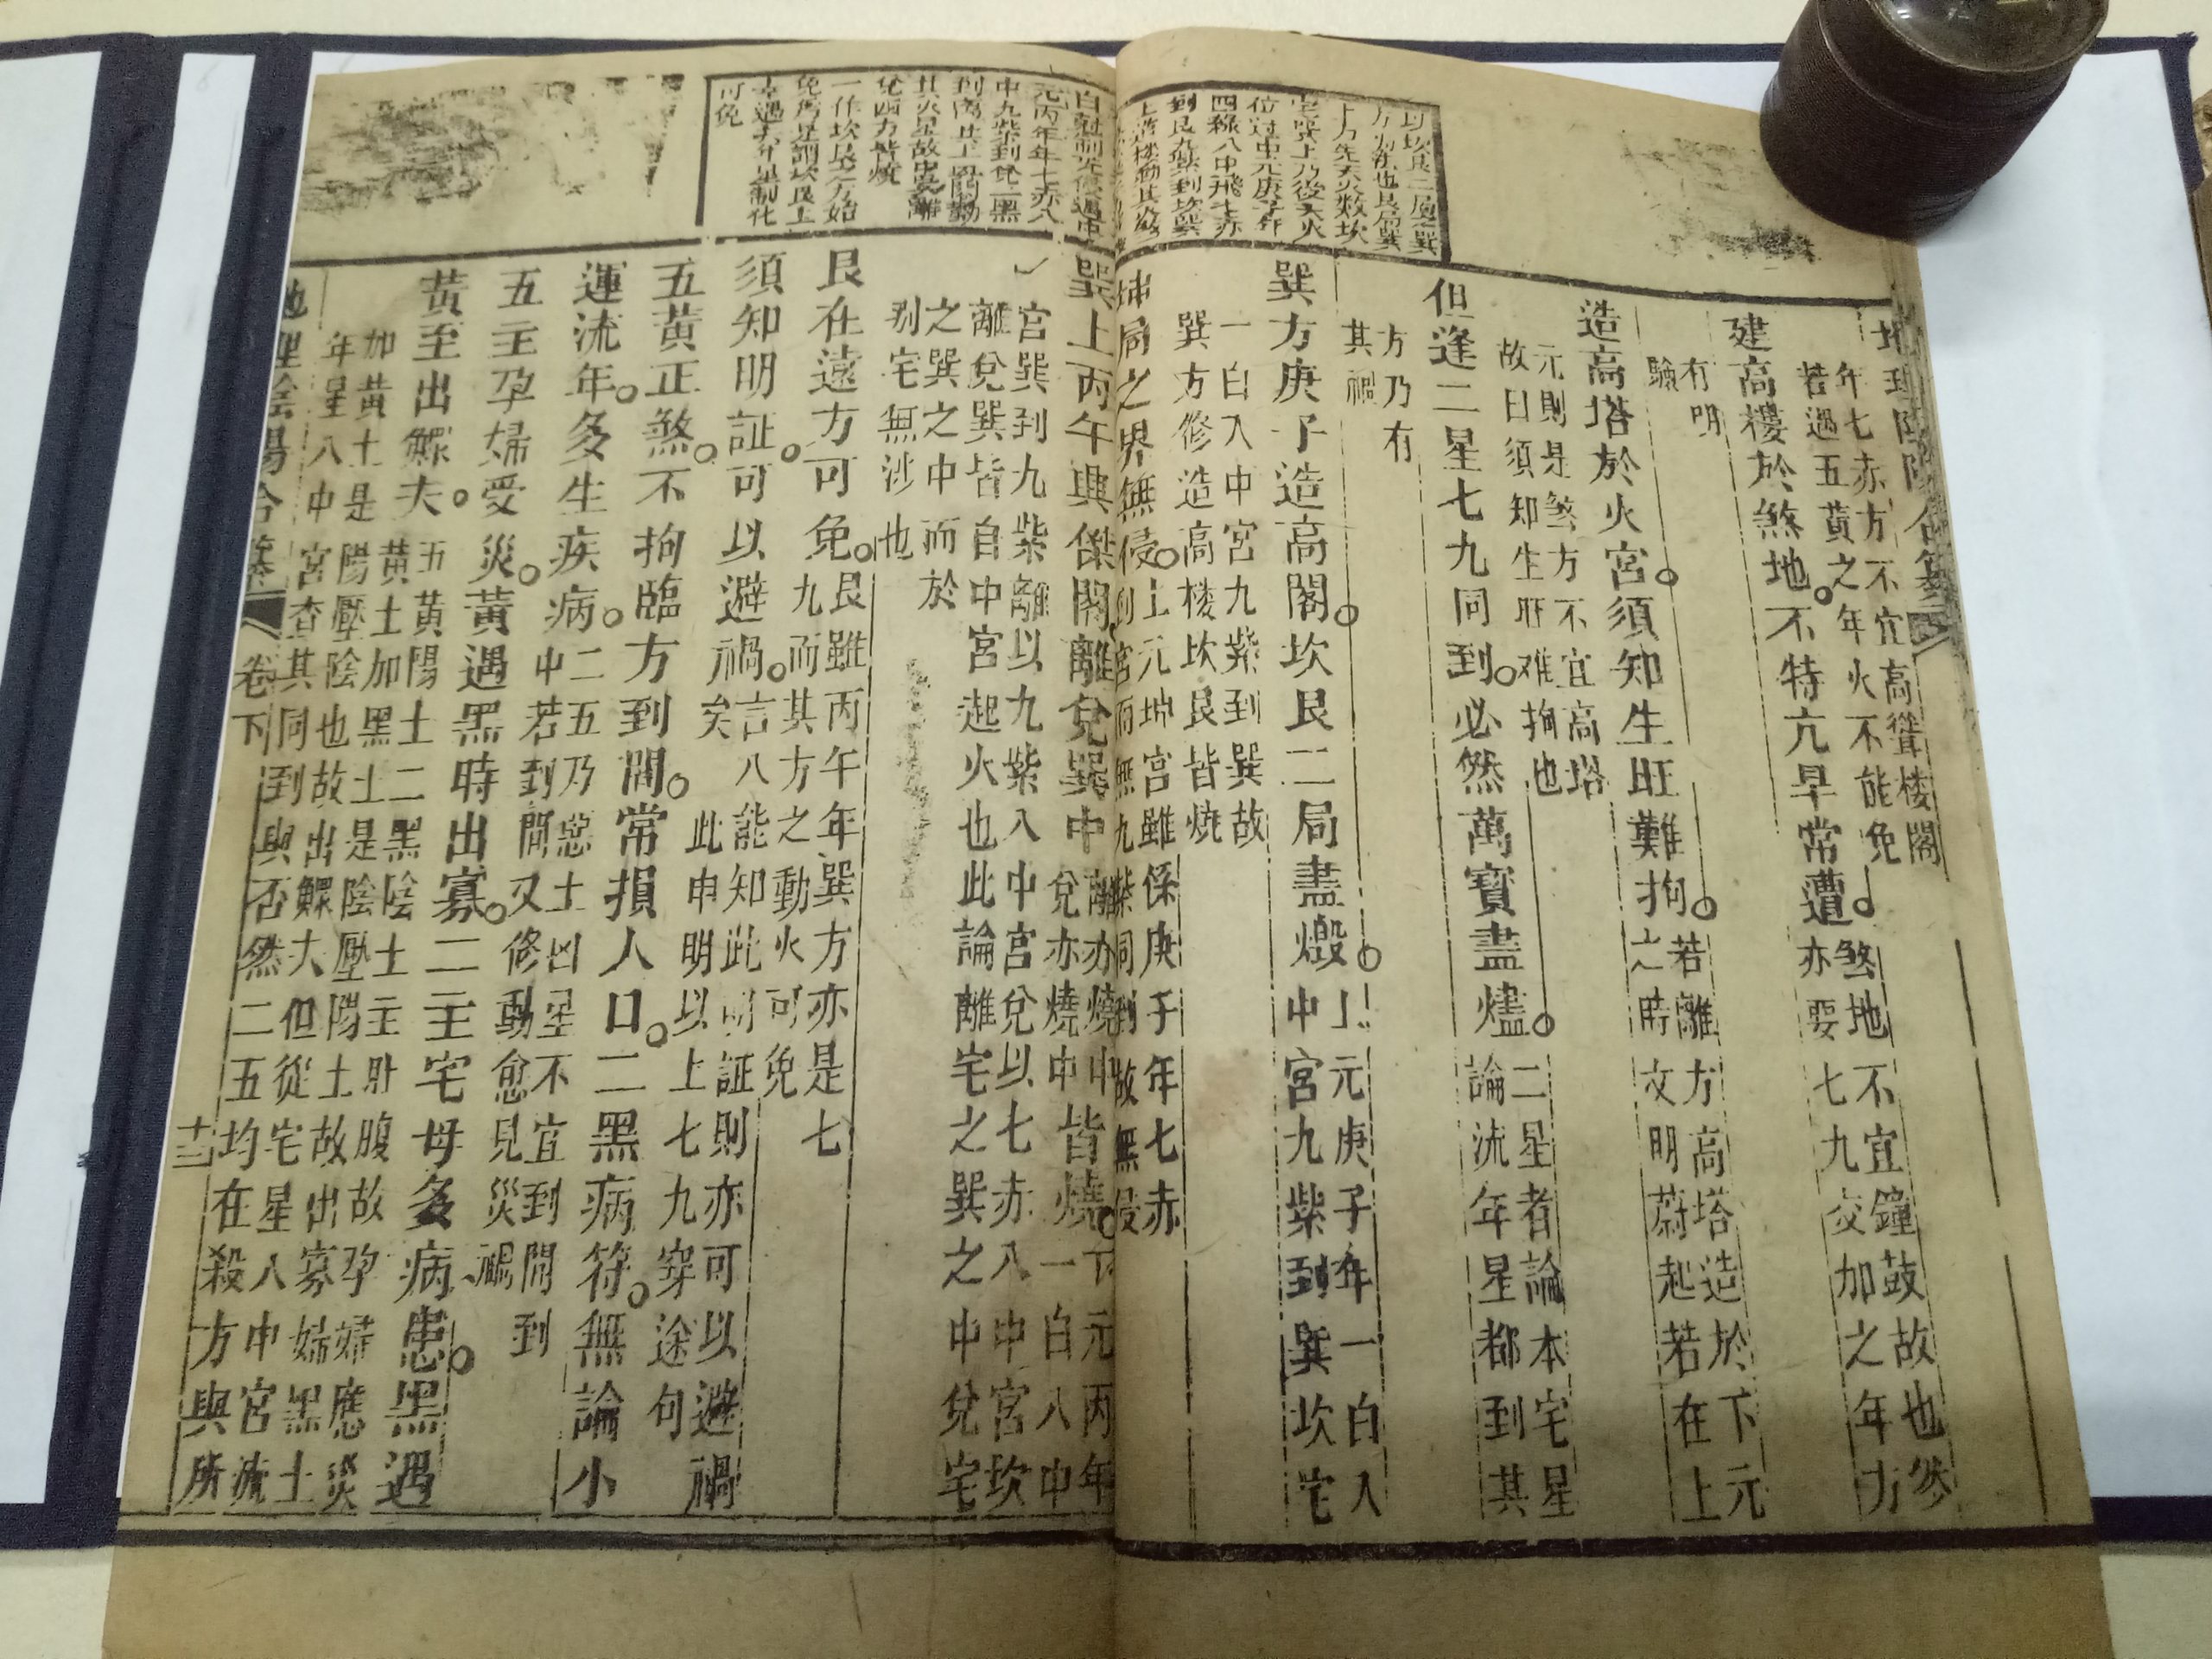 年七赤方不宜高聳楼閣
若遇五黃之年火不能免
建高樓於煞地不特亢旱常遭
煞地不宜鐘鼓故也然
亦要七九交加之年方
有明
驗
造高塔於火宮須知生旺難拘
若離方高塔造於下元
之時文明蔚起若在上
元則是煞方不宜高塔
故曰須知生旺难拘也
但逢二星七九同到必然萬寶盡燼
二星者論本宅星
論流年星都到其
方乃有
其禍
巽方庚子造高閣坎艮二局盡燬
上元庚子年一白入
中宮九紫到巽坎宅
一白入中宮九紫到巽故
巽方修造高楼坎艮皆燒
坤局之界無侵
上元坤宮雖係庚子年七赤
到宮而無九紫同到故無侵
以坎艮二局之巽
方先天火数坎
宅巽上乃後天火
位过中元庚子年
四綠入中飛七赤
到艮九紫到坎巽
巽上丙午興傑閣離兌巽中皆燒
離亦燒中
兌亦燒中
下元丙午年
一白入中
宮巽到九紫離以九紫入中宮兌以七赤入中宮坎
離兌巽皆自中宮起火也此論離宅之巽之中兌宅
之巽之中而於
别宅無涉也
艮在遠方可免
艮雖丙午年巽方亦是七
九而其方之動火可免
須知明証可以避禍
言八能知此明証則亦可以避禍
矣此申明以上七九穿途句
五黃正煞不拘臨方到間常損人口二黑病符無論小
運流年多生疾病
二五乃惡土凶星不宜到間到
中若到間又修動愈見災禍
五主孕婦受災黃遇黑時出寡二主宅母多病患黑遇
黃至出鰥夫
五黃陽土二黑陰土主肚腹故孕婦應災
加黃土是陽壓陰也故出鰥大但從宅星入中宮流
年星入中宮查其同到與否然二五均在殺方與所
地理陰陽合纂
卷下
十三
元丙午年七赤入
中九紫到兌二黑
到离其上高閣動
其火星故中宮離
兌西方皆燒
一作坎艮之方始
免焉是謂坎艮上
幸遇六合是制化
可免